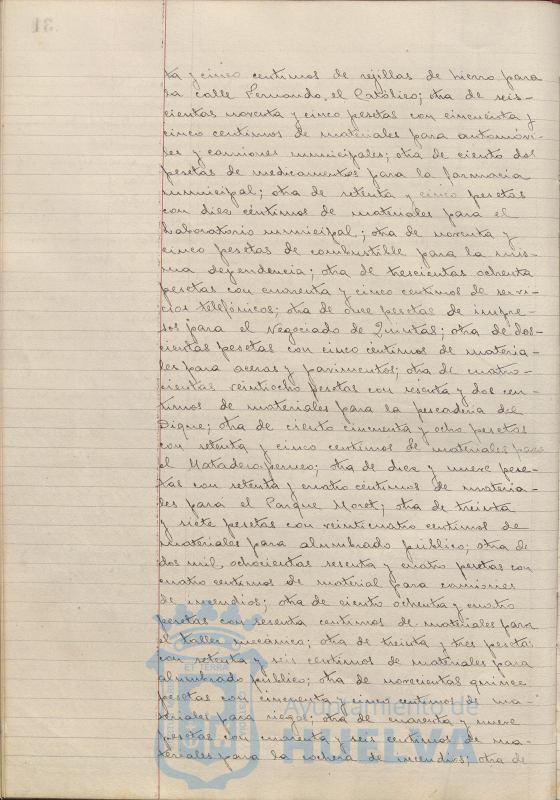 ta y cinco centimos de rejillas de hierro para
la calle Fernando el Católico; otra de seis-
cientas noventa y cinco pesetas con cincuenta y
cinco centimos de materiales para automóvi-
les y camiones municipales; otra de ciento dos
pesetas de medicamentos para la farmacia
municipal; otra de setenta y cinco pesetas
con diez céntimos de materiales para el
Laboratorio municipal; otra de noventa y
cinco pesetas de combustible para la mis-
ma dependencia; otra de trescientas ochenta
pesetas con cuarenta y cinco centimos de servi-
cios telefónicos; otra de doce pesetas de impre-
sos para el Negociado de Quintas; otra de dos-
cientas pesetas con cinco céntimos de materia-
les para aceras y pavimentos; otra de cuatro-
cientas veintiocho pesetas con sesenta y dos cen-
timos de materiales para la pescaderia del
Dique; otra de ciento cincuenta y ocho pesetas
con setenta y cinco centimos de materiales para
el Matadero; otra de diez y nueve pese-
tas con setenta y cuatro centimos de materia-
les para el Parque Moret; otra de treinta
y siete pesetas con veinticuatro centimos de
materiales para alumbrado público; otra de
dos mil ochocientas sesenta y cuatro pesetas con
cuatro centimos de material para camiones
de incendios; otra de ciento ochenta y cuatro
pesetas con sesenta centimos de materiales para
el taller mecánico; otra de treinta y tres pesetas
con setenta y seis centimos de materiales para
alumbrado público; otra de novecientas quince
pesetas con cincuenta y cinco centimos de ma-
teriales para riego; otra de cuarenta y nueve
pesetas con cuarenta y seis centimos de ma-
teriales para la cochera de incendios; otra de
Ayuntamiento de
HUELVA